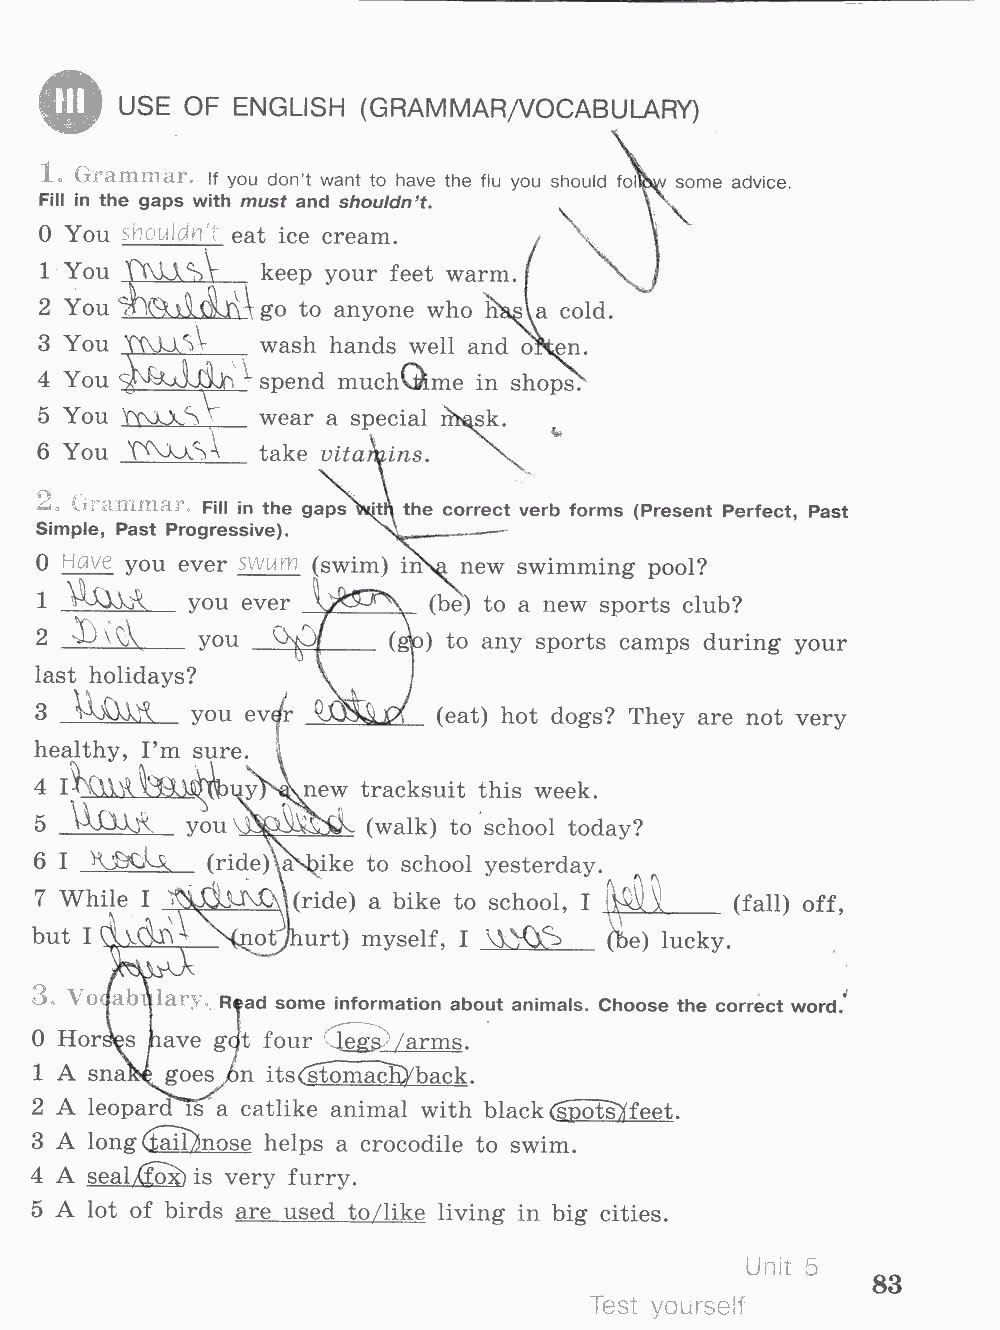 III USE OF ENGLISH (GRAMMAR/VOCABULARY)
1. Grammar. If you don't want to have the flu you should follow some advice.
Fill in the gaps with must and shouldn't.
0 You shouldn't eat ice cream.
1 You must keep your feet warm.
2 You shouldn't go to anyone who has a cold.
3 You must wash hands well and often.
4 You shouldn't spend much time in shops.
5 You must wear a special mask.
6 You must take vitamins.
2. Grammar. Fill in the gaps with the correct verb forms (Present Perfect, Past
Simple, Past Progressive).
0 Have you ever swum (swim) in a new swimming pool?
1 Have you ever been (be) to a new sports club?
2 Did you go (go) to any sports camps during your
last holidays?
3 Have you ever eaten (eat) hot dogs? They are not very
healthy, I'm sure.
4 I have bought (buy) a new tracksuit this week.
5 Have you walked (walk) to school today?
6 I rode (ride) a bike to school yesterday.
7 While I riding (ride) a bike to school, I fell (fall) off,
but I didn't (not hurt) myself, I was (be) lucky.
hurt
3. Vocabulary. Read some information about animals. Choose the correct word.
0 Horses have got four legs/arms.
1 A snake goes on its stomach/back.
2 A leopard is a catlike animal with black spots/feet.
3 A long tail/nose helps a crocodile to swim.
4 A seal/fox is very furry.
5 A lot of birds are used to/like living in big cities.
Unit 5
83
Test yourself